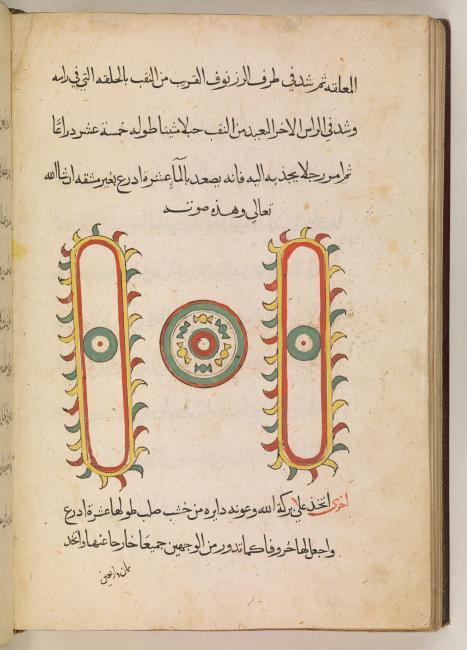 المعلقه ثم شد في طرف الرزنوف القريب من النقب بالحلقه التي في راسه
وشد في الراس الاخر البعيد من النقب حبلا متينا طوله خمسة عشر دراعا
ثم امر رجلا يجذبه اليه فانه يصعد بالمآء عشرة ادرع بغير مشقه ان شا الله
تعالى وهذه صورته
اخرى اتخذ على بركة الله وعونه دايره من خشب صلب طولها عشرة ادرع
واجعل لها حروفا كما تدور من الوجهين جميعا خارجا عنها واتخد